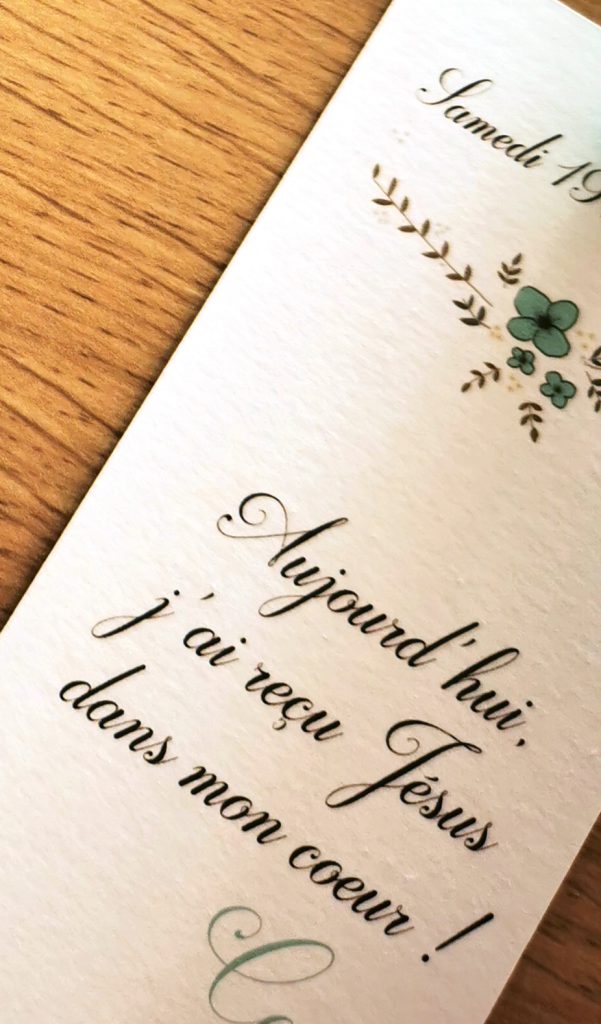 Samedi 19
Aujourd'hui,
j'ai reçu Jésus
dans mon coeur !